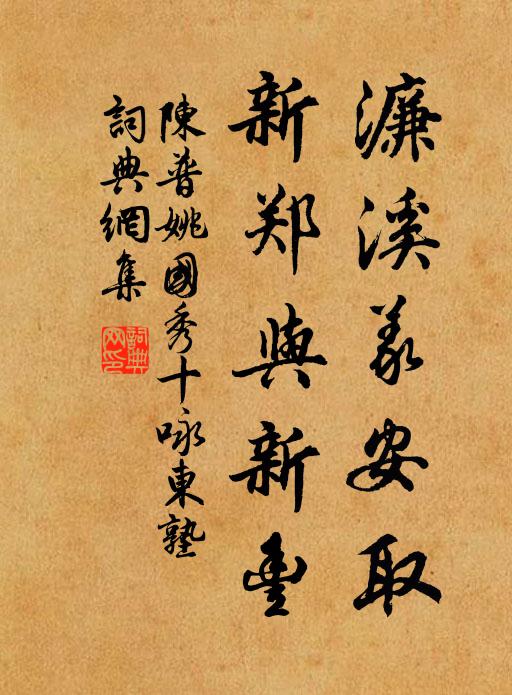 濂溪义安取
新郑與新豊
陳普姚國秀十咏東塾
詞典網集
詞典网印